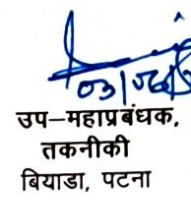 उप–महाप्रबंधक,
तकनीकी
बियाडा, पटना